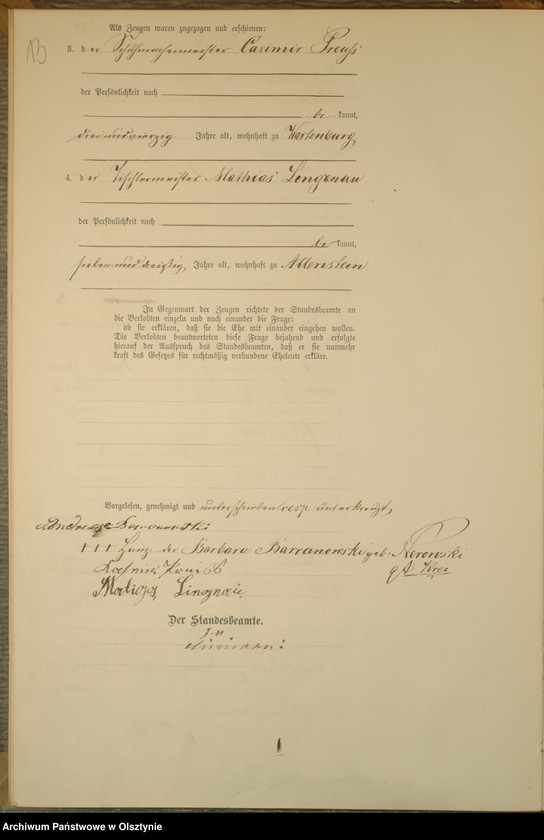 13
Als Zeugen waren zugezogen und erschienen:
3. der Schuhmachermeister Casimir Preuß
der Persönlichkeit nach
be kannt,
dreiundvierzig Jahre alt, wohnhaft zu Wartenburg,
4. der Tischlermeister Mathias Lingnau
der Persönlichkeit nach
be kannt,
siebenunddreißig, Jahre alt, wohnhaft zu Allenstein
In Gegenwart der Zeugen richtete der Standesbeamte an
die Verlobten einzeln und nach einander die Frage:
ob sie erklären, daß sie die Ehe mit einander eingehen wollen.
Die Verlobten beantworteten diese Frage bejahend und erfolgte
hierauf der Ausspruch des Standesbeamten, daß er sie nunmehr
kraft des Gesetzes für rechtmäßig verbundene Eheleute erkläre.
Vorgelesen, genehmigt und unterschrieben resp. unterkreuzt,
+++ der Barbara Barranowski geb.
Lingnau
Der Standesbeamte.
Archiwum Państwowe w Olsztynie